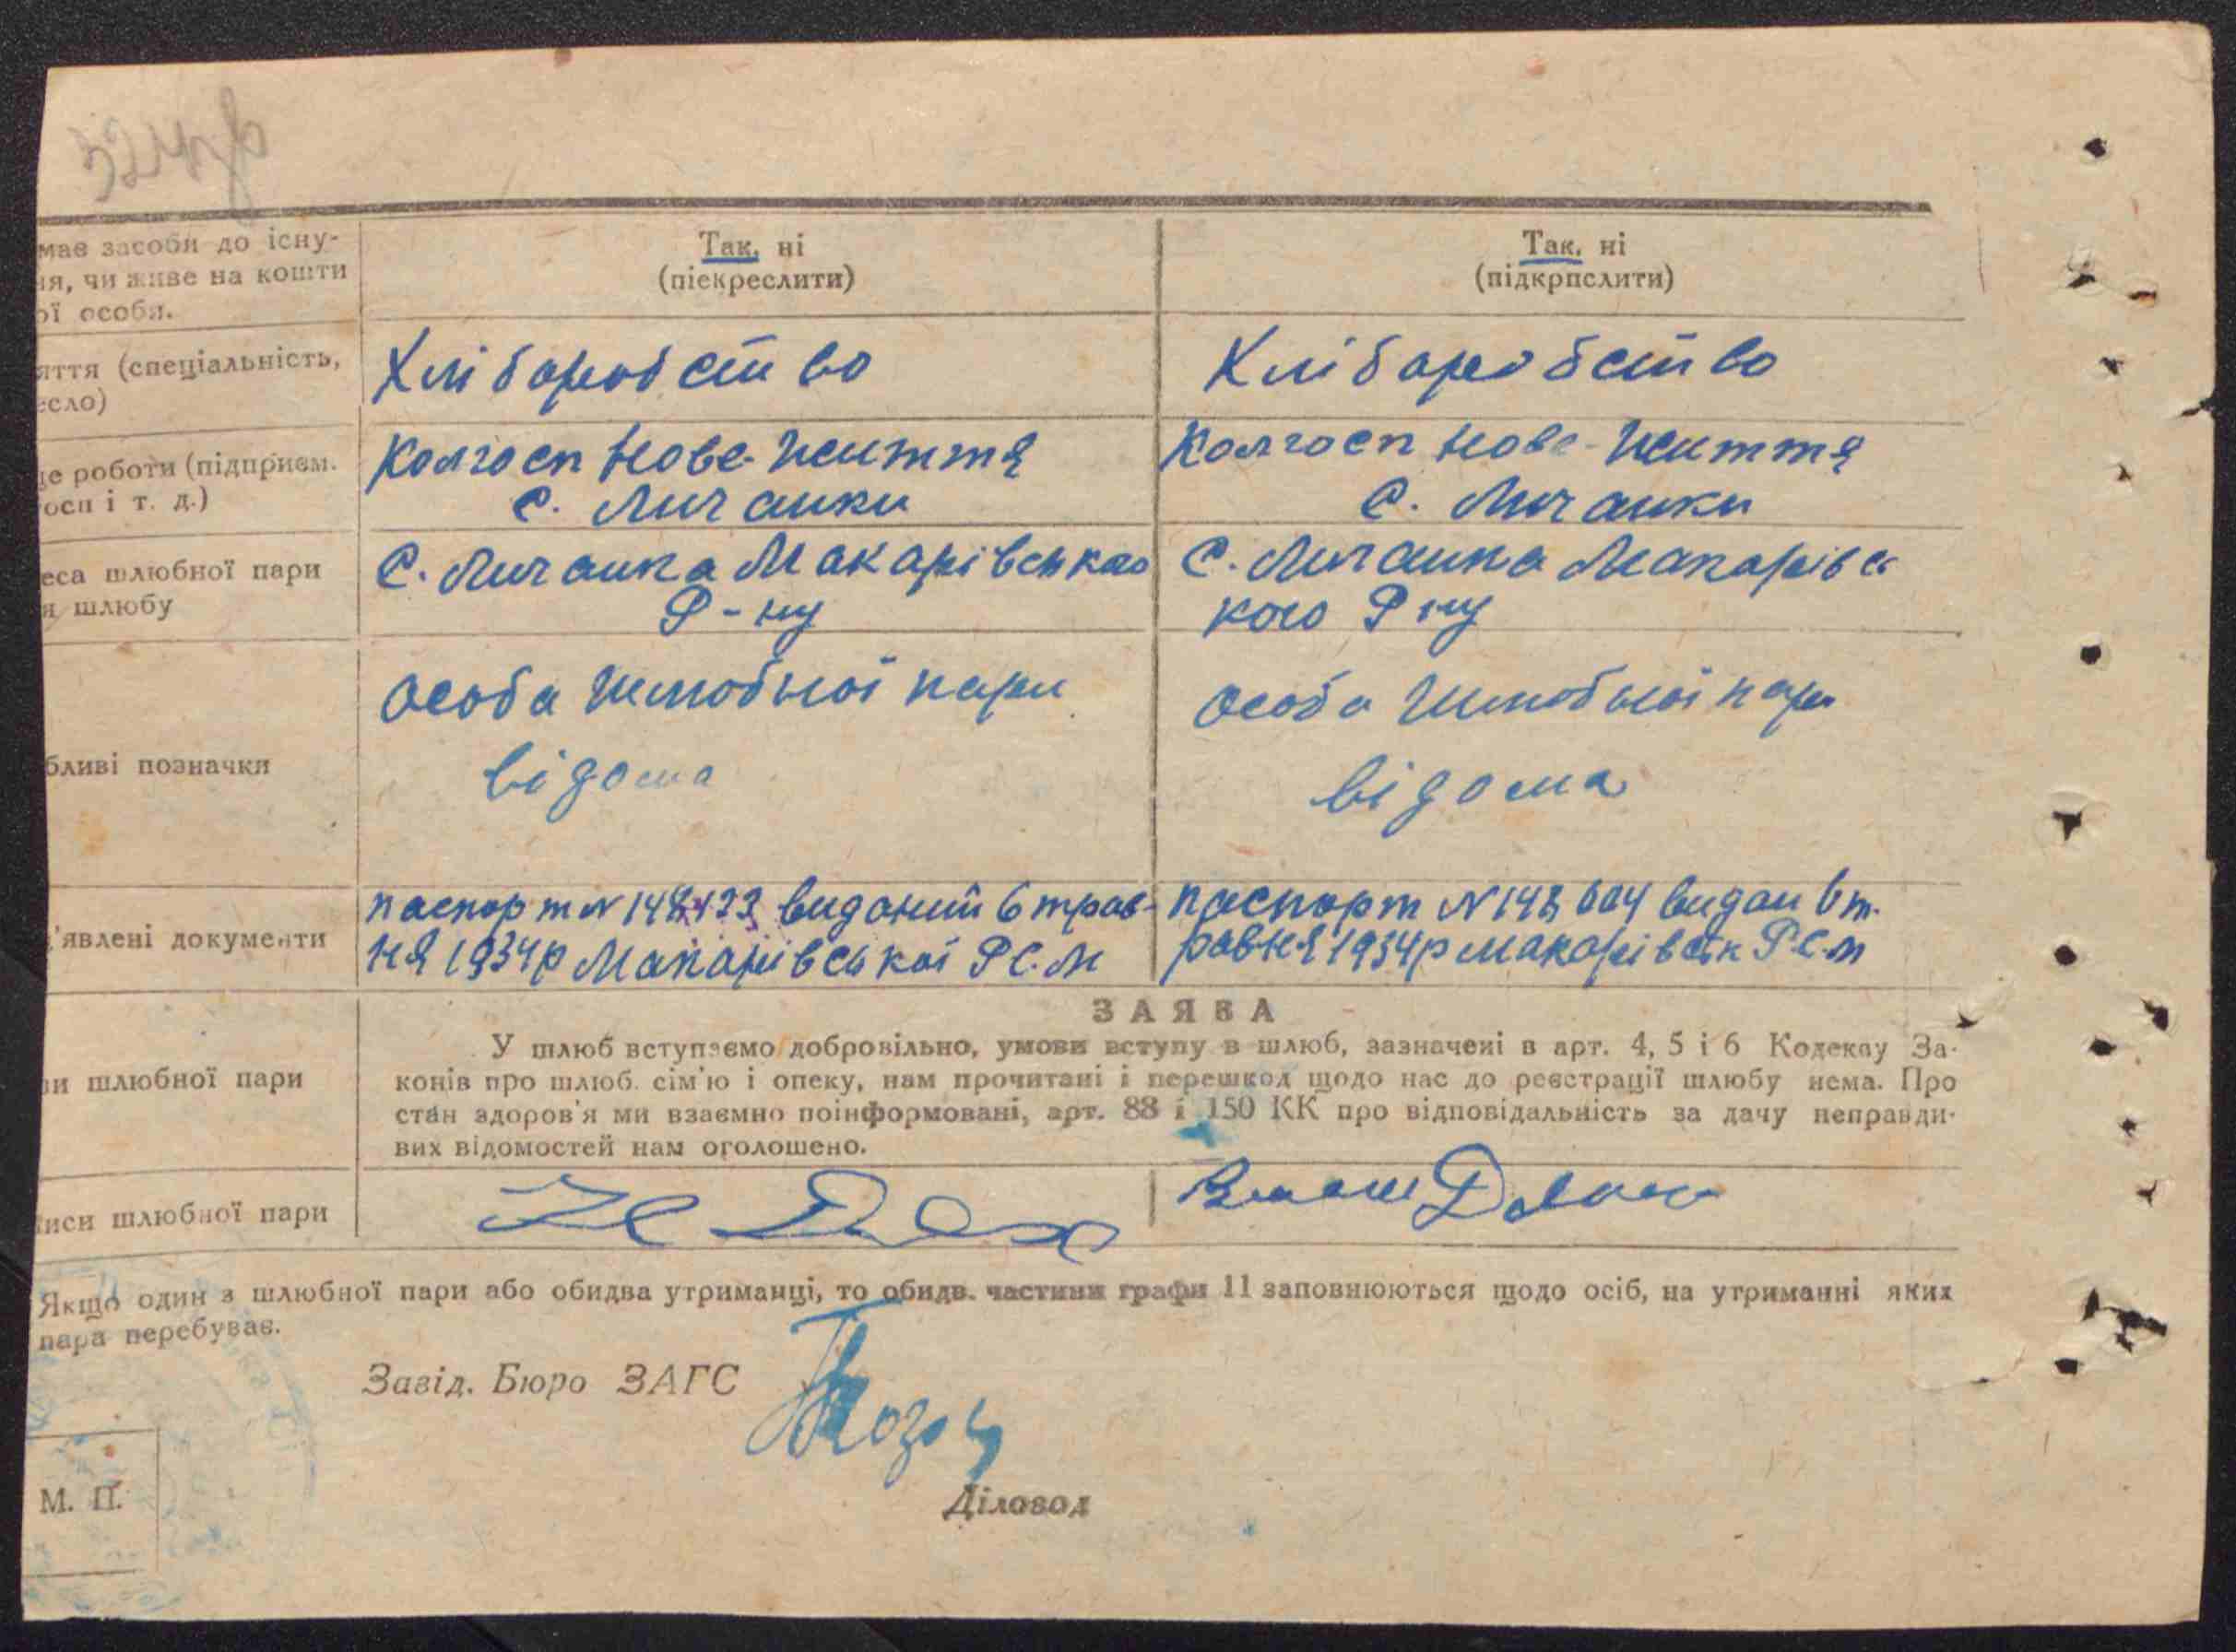 має засоби до існу-
ня, чи живе на кошти
ої особи.
Так, ні
(піекреслити)
Так, ні
(підкрпслити)
яття (спеціальність,
есло)
Хліборобство
Хліборобство
це роботи (підприєм.
осп і т. д.)
Колгосп Нове-Життя
с. Личанки
Колгосп Нове-Життя
с. Личанки
еса шлюбної пари
я шлюбу
С. Личанка Макарівського
Р-ну
С. Личанка Макарівсь
кого Р ну
бливі позначки
Особа шлюбної пари
відома
Особа шлюбної пари
відома
'явлені документи
паспорт N виданий 6 трав-
ня 1934р Макарівської Р.С.М
паспорт N видан 6 т.
равня 1934р Макарівськ Р.С.М
ЗАЯВА
ви шлюбної пари
У шлюб вступаємо добровільно, умови вступу в шлюб, зазначені в арт. 4, 5 і 6 Кодексу За-
конів про шлюб. сім'ю і опеку, нам прочитані і перешкод щодо нас до реєстрації шлюбу нема. Про
стан здоров'я ми взаємно поінформовані, арт. 88 і 150 КК про відповідальність за дачу неправди-
вих відомостей нам оголошено.
писи шлюбної пари
Якщо один з шлюбної пари або обидва утриманці, то обидв. частини графи 11 заповнюються щодо осіб, на утриманні яких
пара перебуває.
Завід. Бюро ЗАГС
М. П.
Діловод